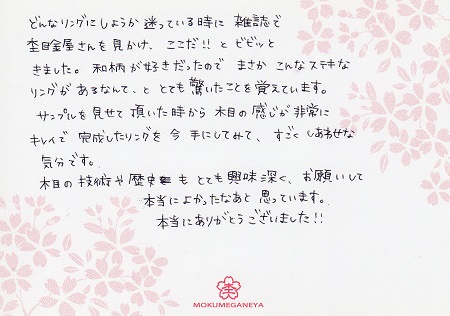 どんなリングにしようか 迷っている時に 雑誌で
杢目金屋さんを見かけ、ここだ!! と ビビッと
きました。和柄が好きだったので まさか こんなステキな
リングがあるなんて、と とても 驚いたことを覚えています。
サンプルを見せて頂いた時から 木目の感じが非常に
キレイで 完成したリングを 今 手にしてみて、すごく しあわせな
気分です。
木目の技術や歴史も とても興味深く、お願いして
本当によかったなあと 思っています。
本当にありがとうございました!!
MOKUMEGANEYA